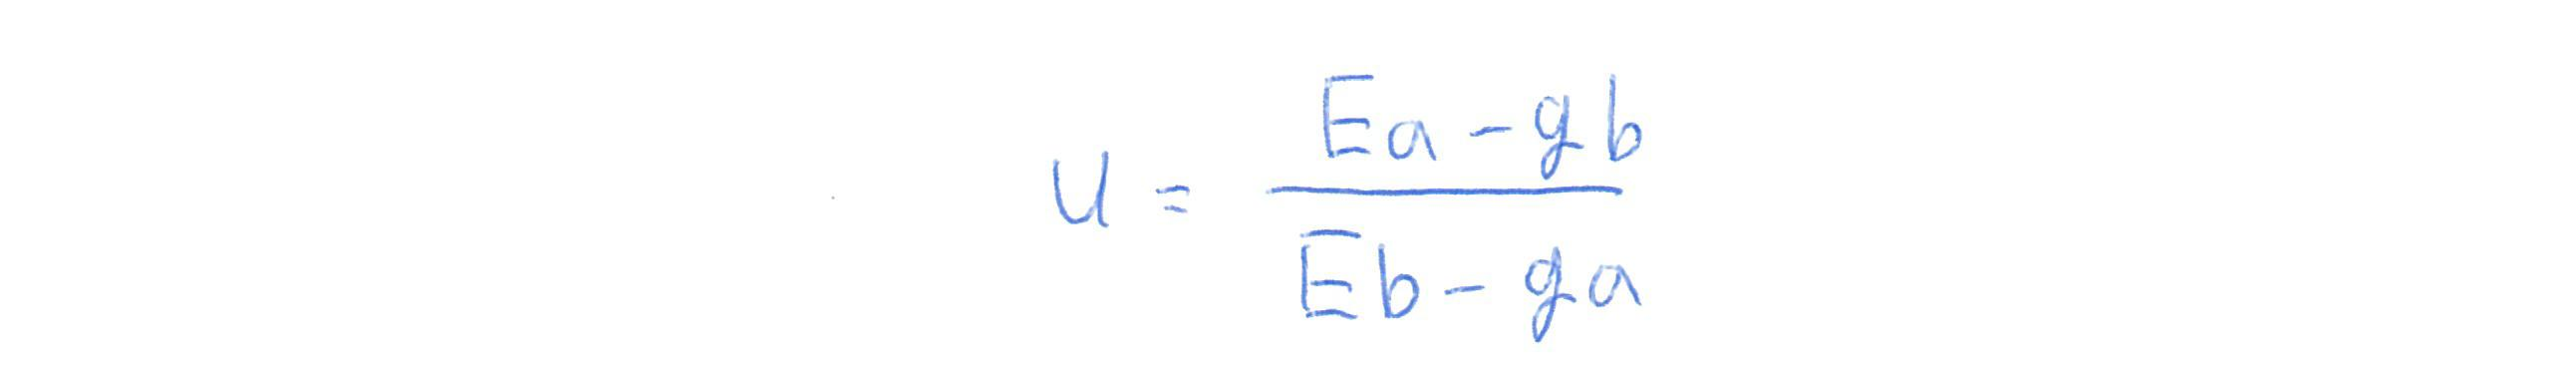 u = \frac{Ea - gb}{Eb - ga}